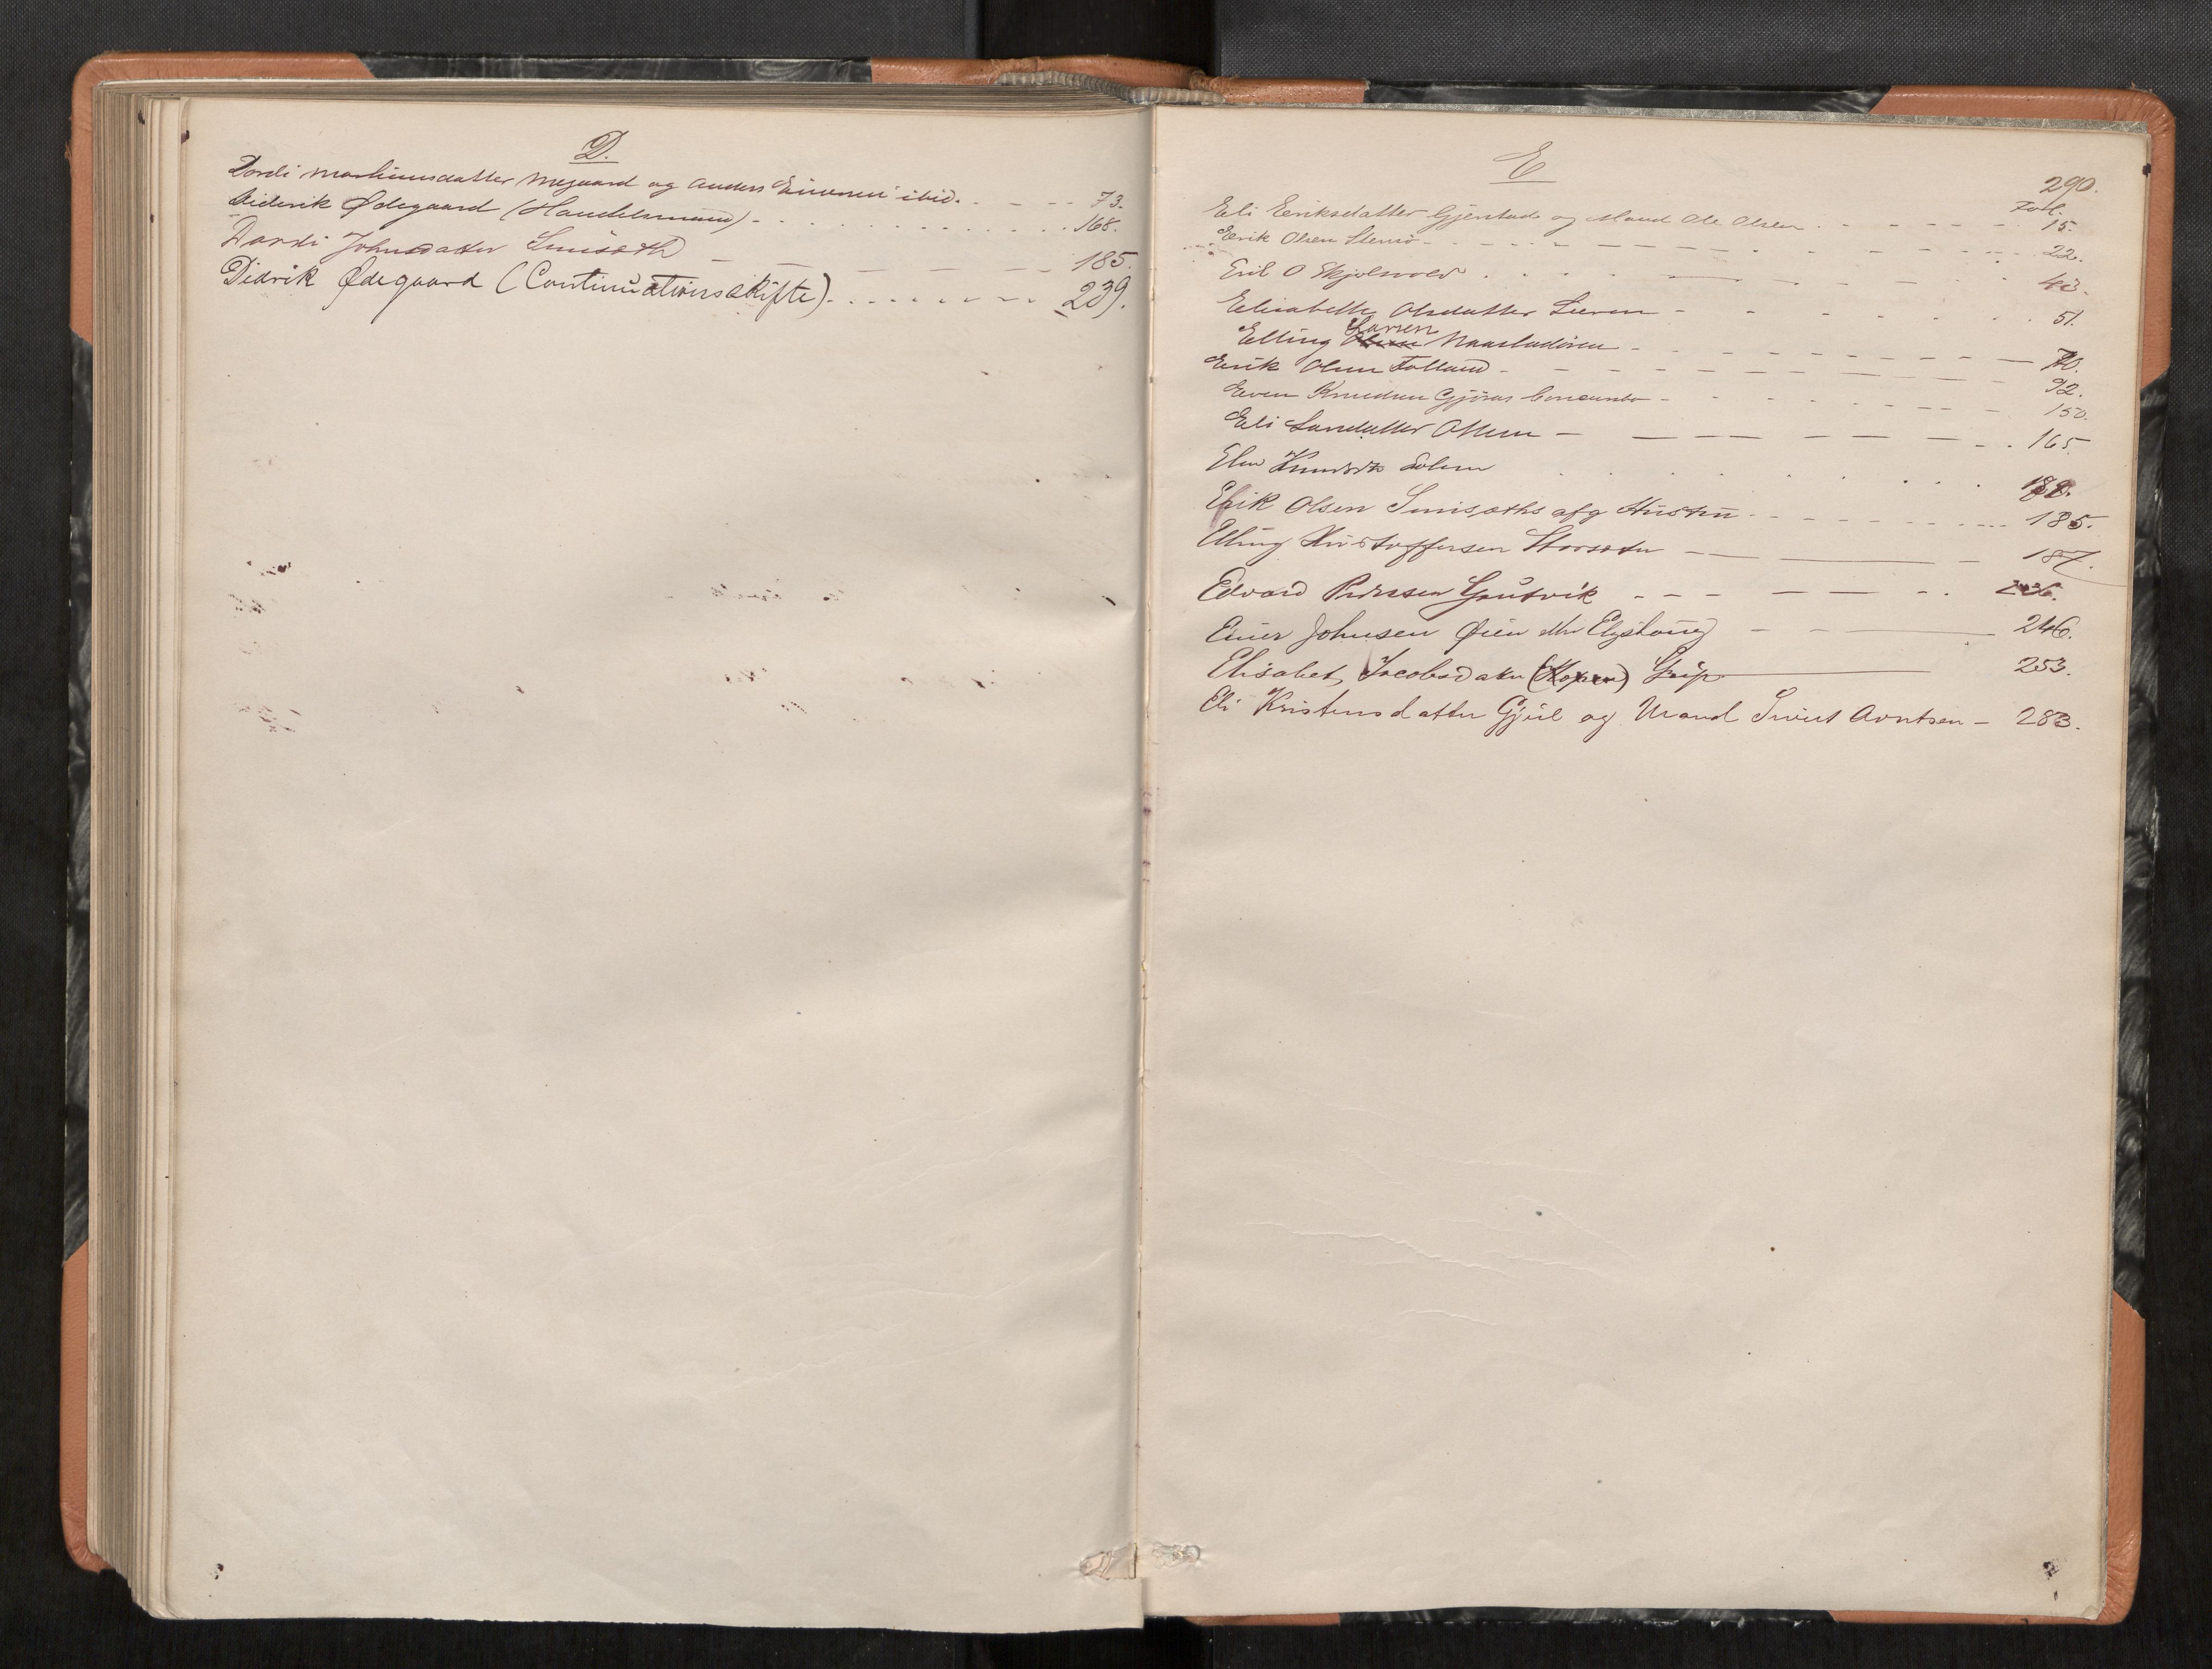 D.
Dordi Marhinusdatter Megaard og Anders Einersen ibid. - - - - 73.
Diderik Ødegaard (Handelsmand) - . . . . . . . . . . . 168.
Dordi Johnsdatter Smisæth - - - - - - 185.
Didrik Ødegaard (Continuationsskifte). - - - - - - - 239.
E
290.
Fol.
Eli Eeriksdatter Gjerstad og Mand Ole Olsen . . - - - - 15.
Eerik Olsen Stensø - - - - - - - - 22.
Eril O Skjølsvold . . . . - - - 43.
Elisabeth Olsdatter Leeren - - - - - - 51.
Larsen
Elling Naastadøren - - - - - - - 70.
Erik Olsen Folland - - - - - - - 92.
Even Knudsen Gjøras - - - - - - 150.
Eli Larsdatter Ottem - - - - - - - 165.
Knudsdtr Solem . . . . . .
Erik Olsen Smisæths afg Hustru - - - - - - - 185.
Elling Kristoffersen Storsæter - - - 187.
Edvard Pedersen Gautvik - - - - - - - 236.
Einer Johnsen Øien eller Elgshaug - - - 246.
Elisabet Jacobsdatter (Hopen) Grip - 253.
Eli Kristensdatter Gjül og Mand Sivert Arntsen - 283.